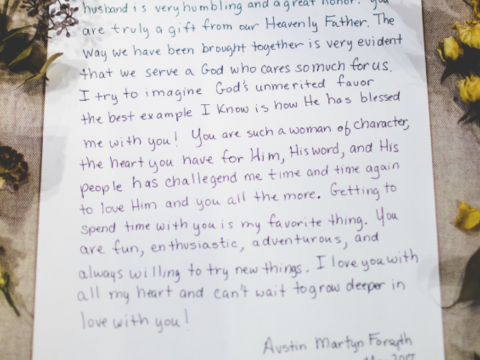 husband is very humbling and a great honor. You
are truly a gift from our Heavenly Father. The
way we have been brought together is very evident
that we serve a God who cares so much for us.
I try to imagine God's unmerited favor
the best example I know is how He has blessed
me with you! You are such a woman of character,
the heart you have for Him, His word, and His
people has challegend me time and time again
to love Him and you all the more. Getting to
spend time with you is my favorite thing. You
are fun, enthusiastic, adventurous, and
always willing to try new things. I love you with
all my heart and can't wait to grow deeper in
love with you!
Austin Martyn Forsyth
2017